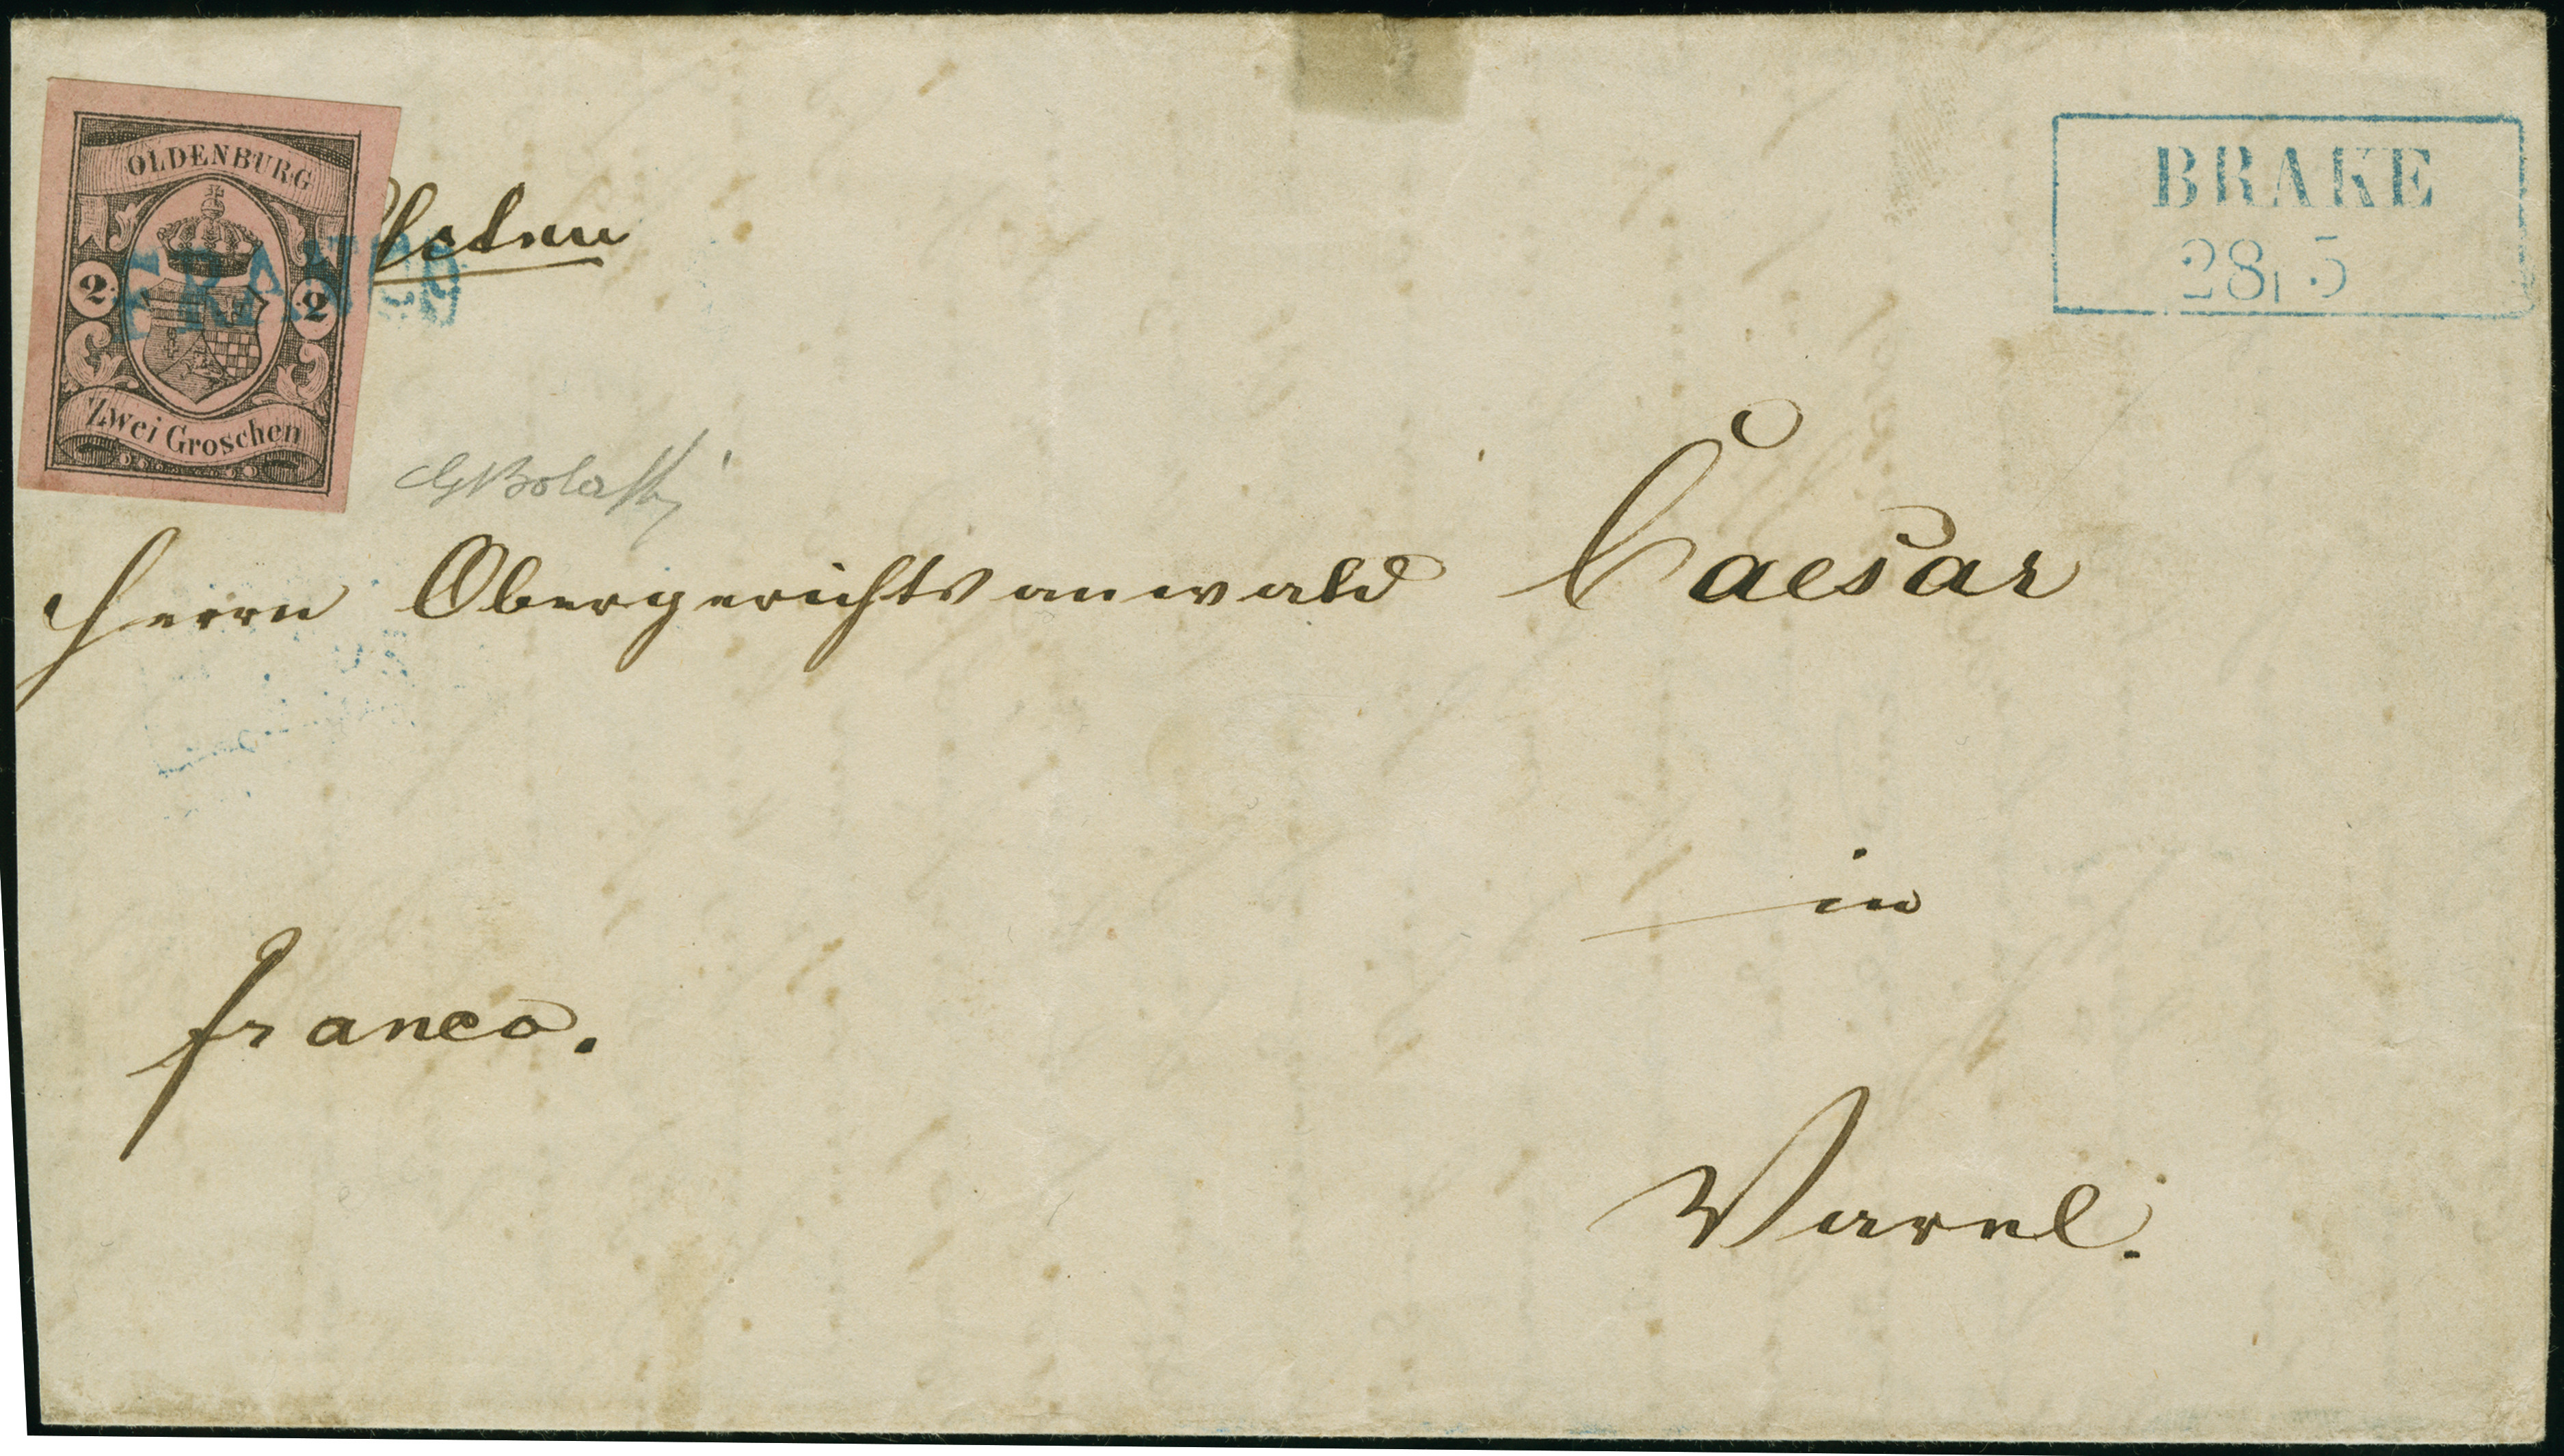 OLDENBURG
2 2
Zwei Groschen
FRANCO
BRAKE
28 5
Herrn Obergerichtsanwald Caesar
in
franco.
Varel.